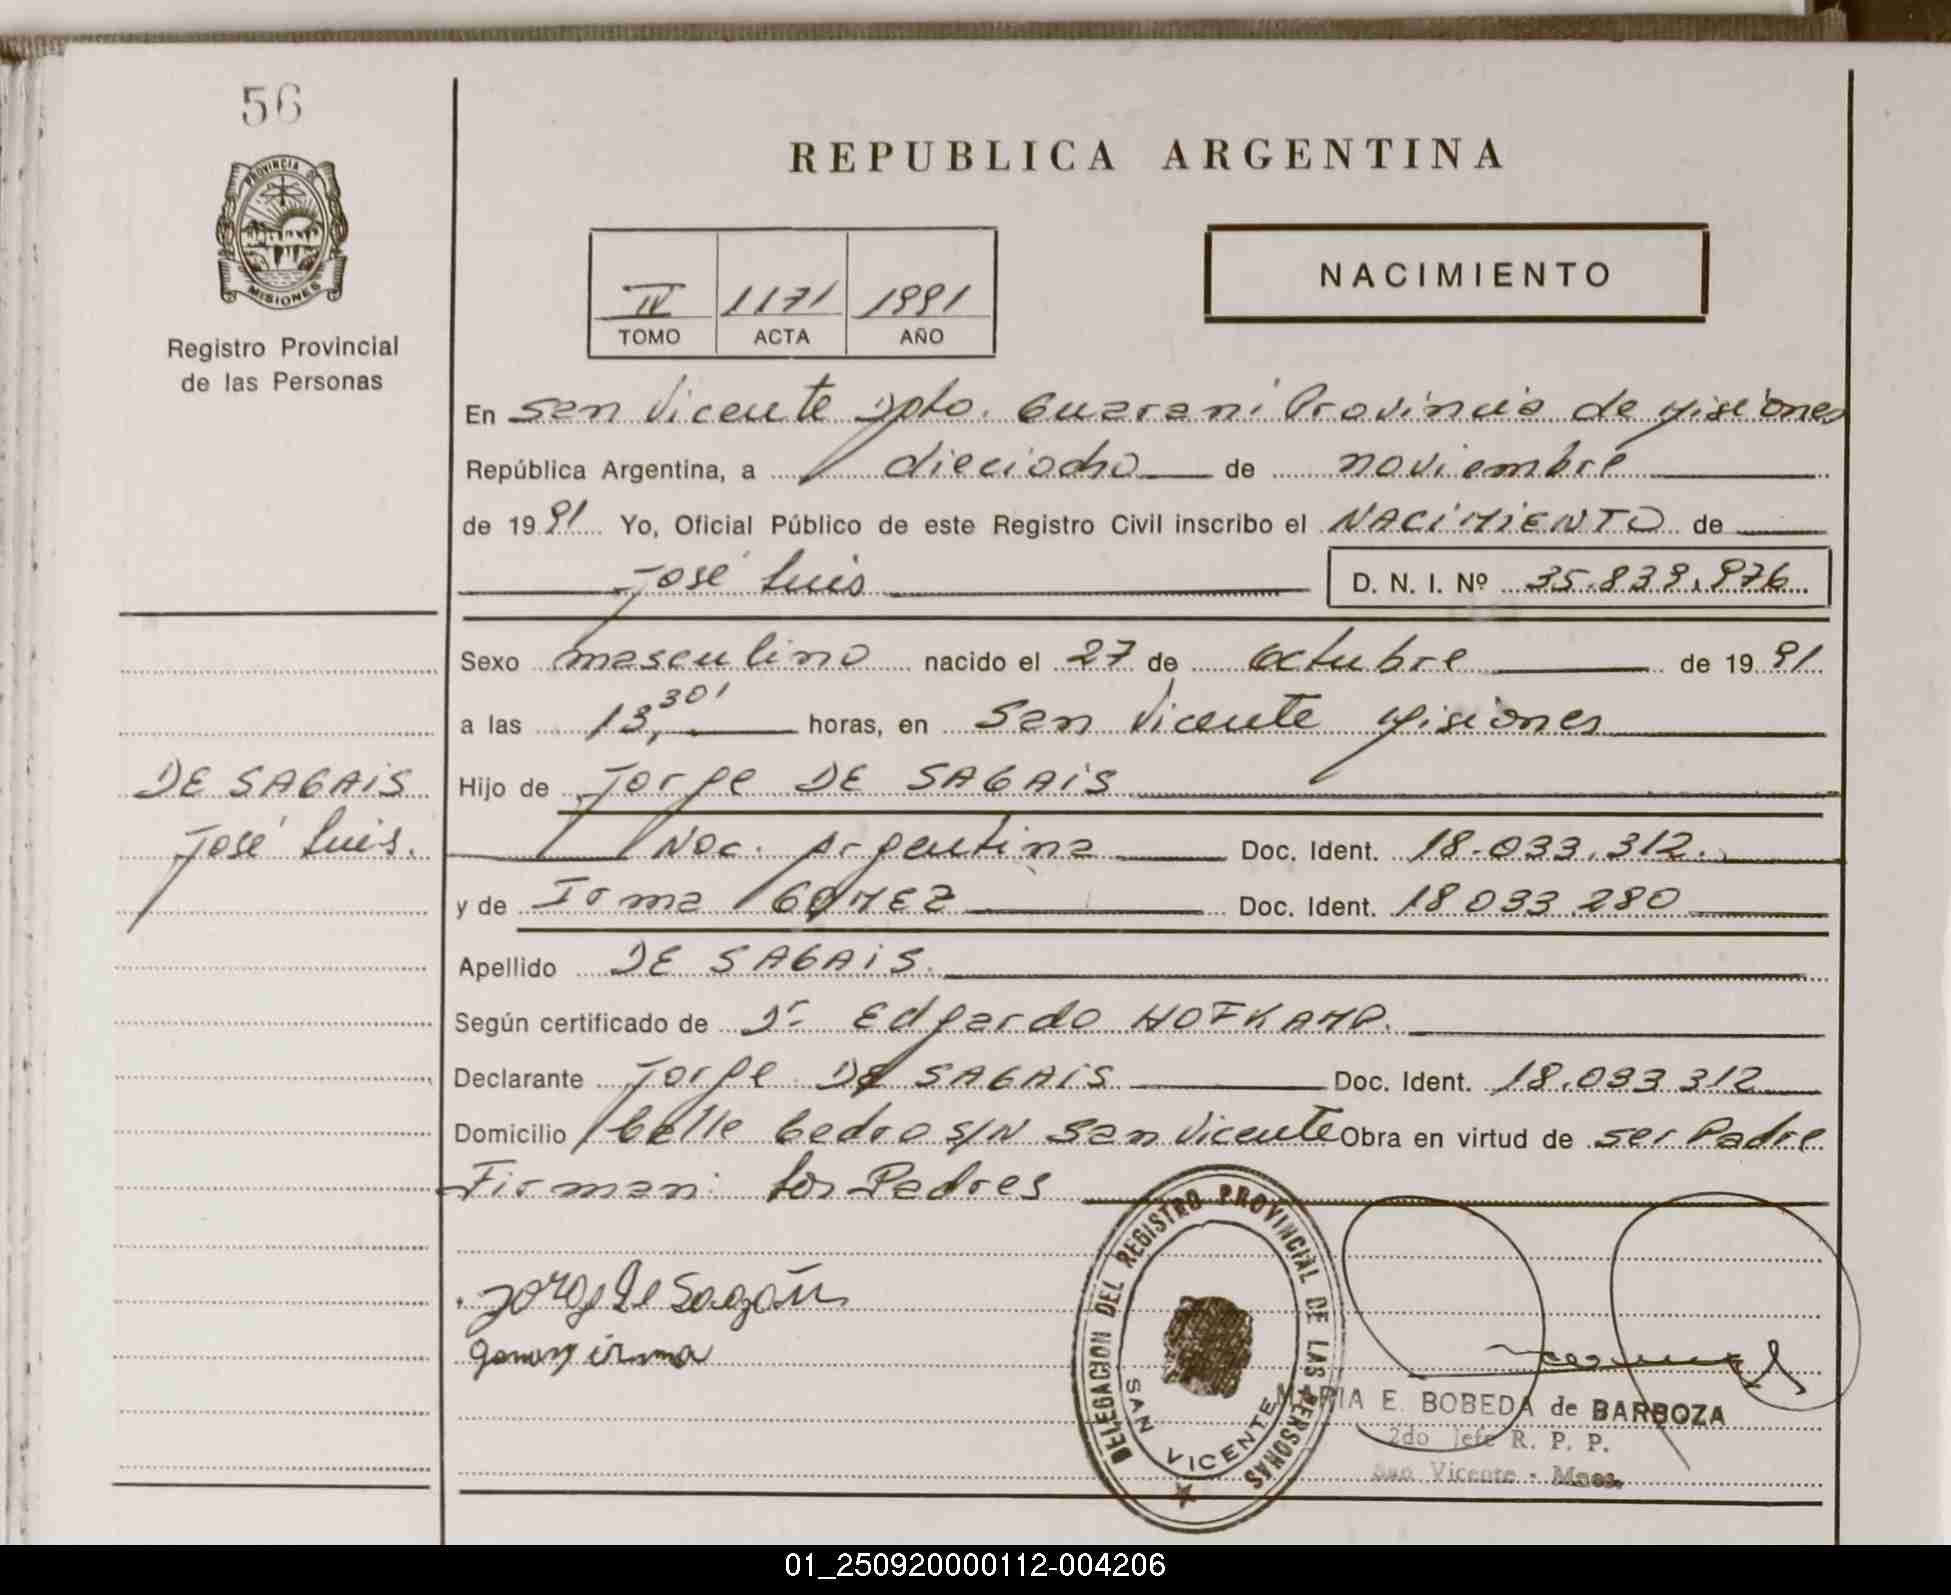 56
PROVINCIA DE
MISIONES
Registro Provincial
de las Personas
REPUBLICA ARGENTINA
NACIMIENTO
IV 1171 1991
TOMO ACTA AÑO
En San Vicente Dpto. Guarani Provincia de Misiones
República Argentina, a dieciocho de noviembre
de 1991 Yo, Oficial Público de este Registro Civil inscribo el NACIMIENTO de
José Luis D. N. I. Nº 35.839.976
Sexo masculino nacido el 27 de Octubre de 1991
a las 13,30' horas, en San Vicente Misiones
DE SAGAIS
José Luis.
Hijo de Jorge DE SAGAIS
Nac. Argentina Doc. Ident. 18.033.312.
y de Irma GOMEZ Doc. Ident. 18 033 280
Apellido DE SAGAIS.
Según certificado de Dr. Edgardo HOFKAMP.
Declarante Jorge DE SAGAIS Doc. Ident. 18.033 312
Domicilio Calle Cedro S/N San Vicente Obra en virtud de ser Padre
Firman: los Padres
Jorge De
irma
DELEGACION DEL REGISTRO PROVINCIAL DE LAS PERSONAS
SAN VICENTE
MARIA E. BOBEDA de BARBOZA
2do Jefe R. P. P.
San Vicente - Mnes.
01_250920000112-004206